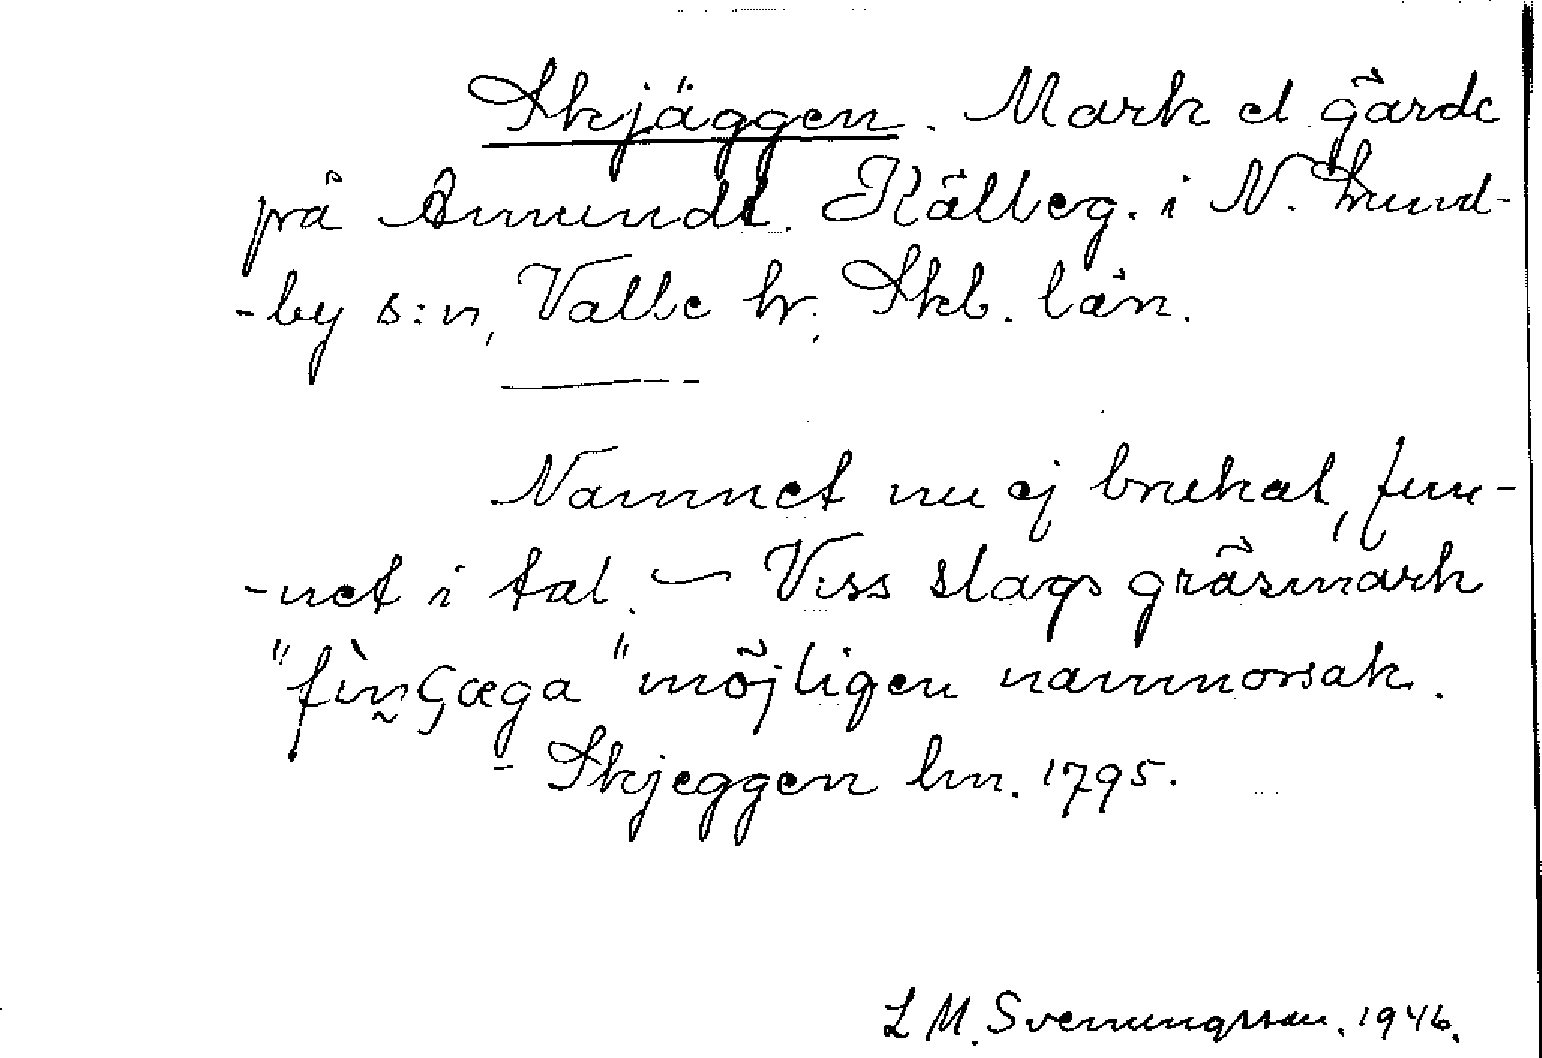 Skjäggen. Mark el gärde
på Amundt. Källeg. i N. Lund-
-by s:n, Valle hr. Skb. län.
Namnet nu ej brukat, fun-
-net i tal. – Viss slags gräsmark
"fin̰çæga" möjligen namnorsak.
– Skjeggen hm. 1795.
L M. Svenungsson. 1946.